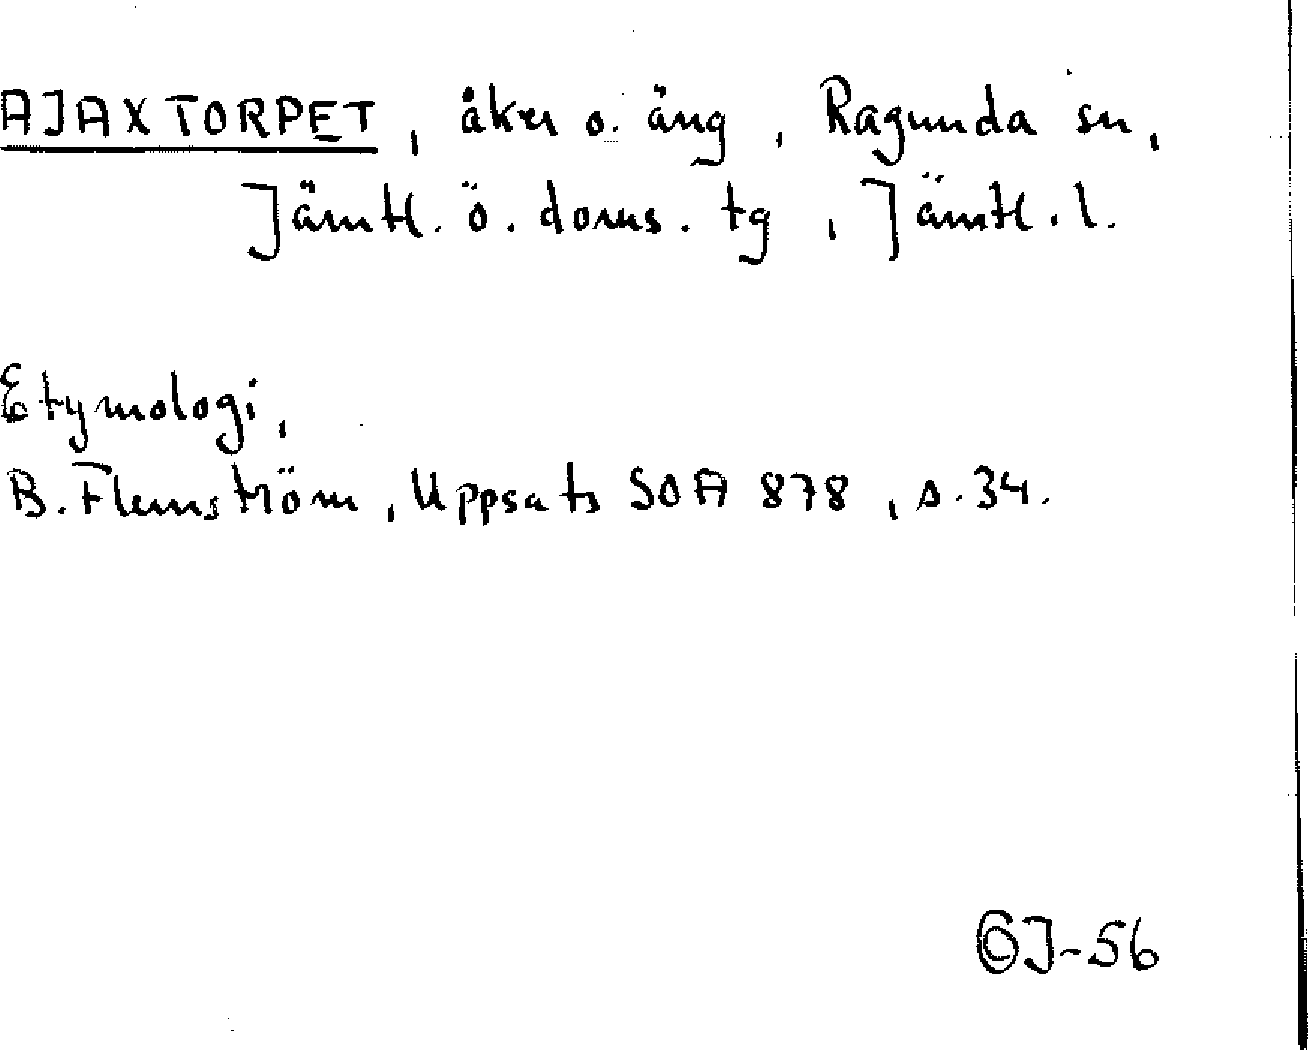 AJAXTORPET, åker o. äng, Ragunda sn,
Jämtl. ö. doms. tg, Jämtl. l.
Etymologi,
B. Flemström, Uppsats SOA 878, s. 34.
J-56